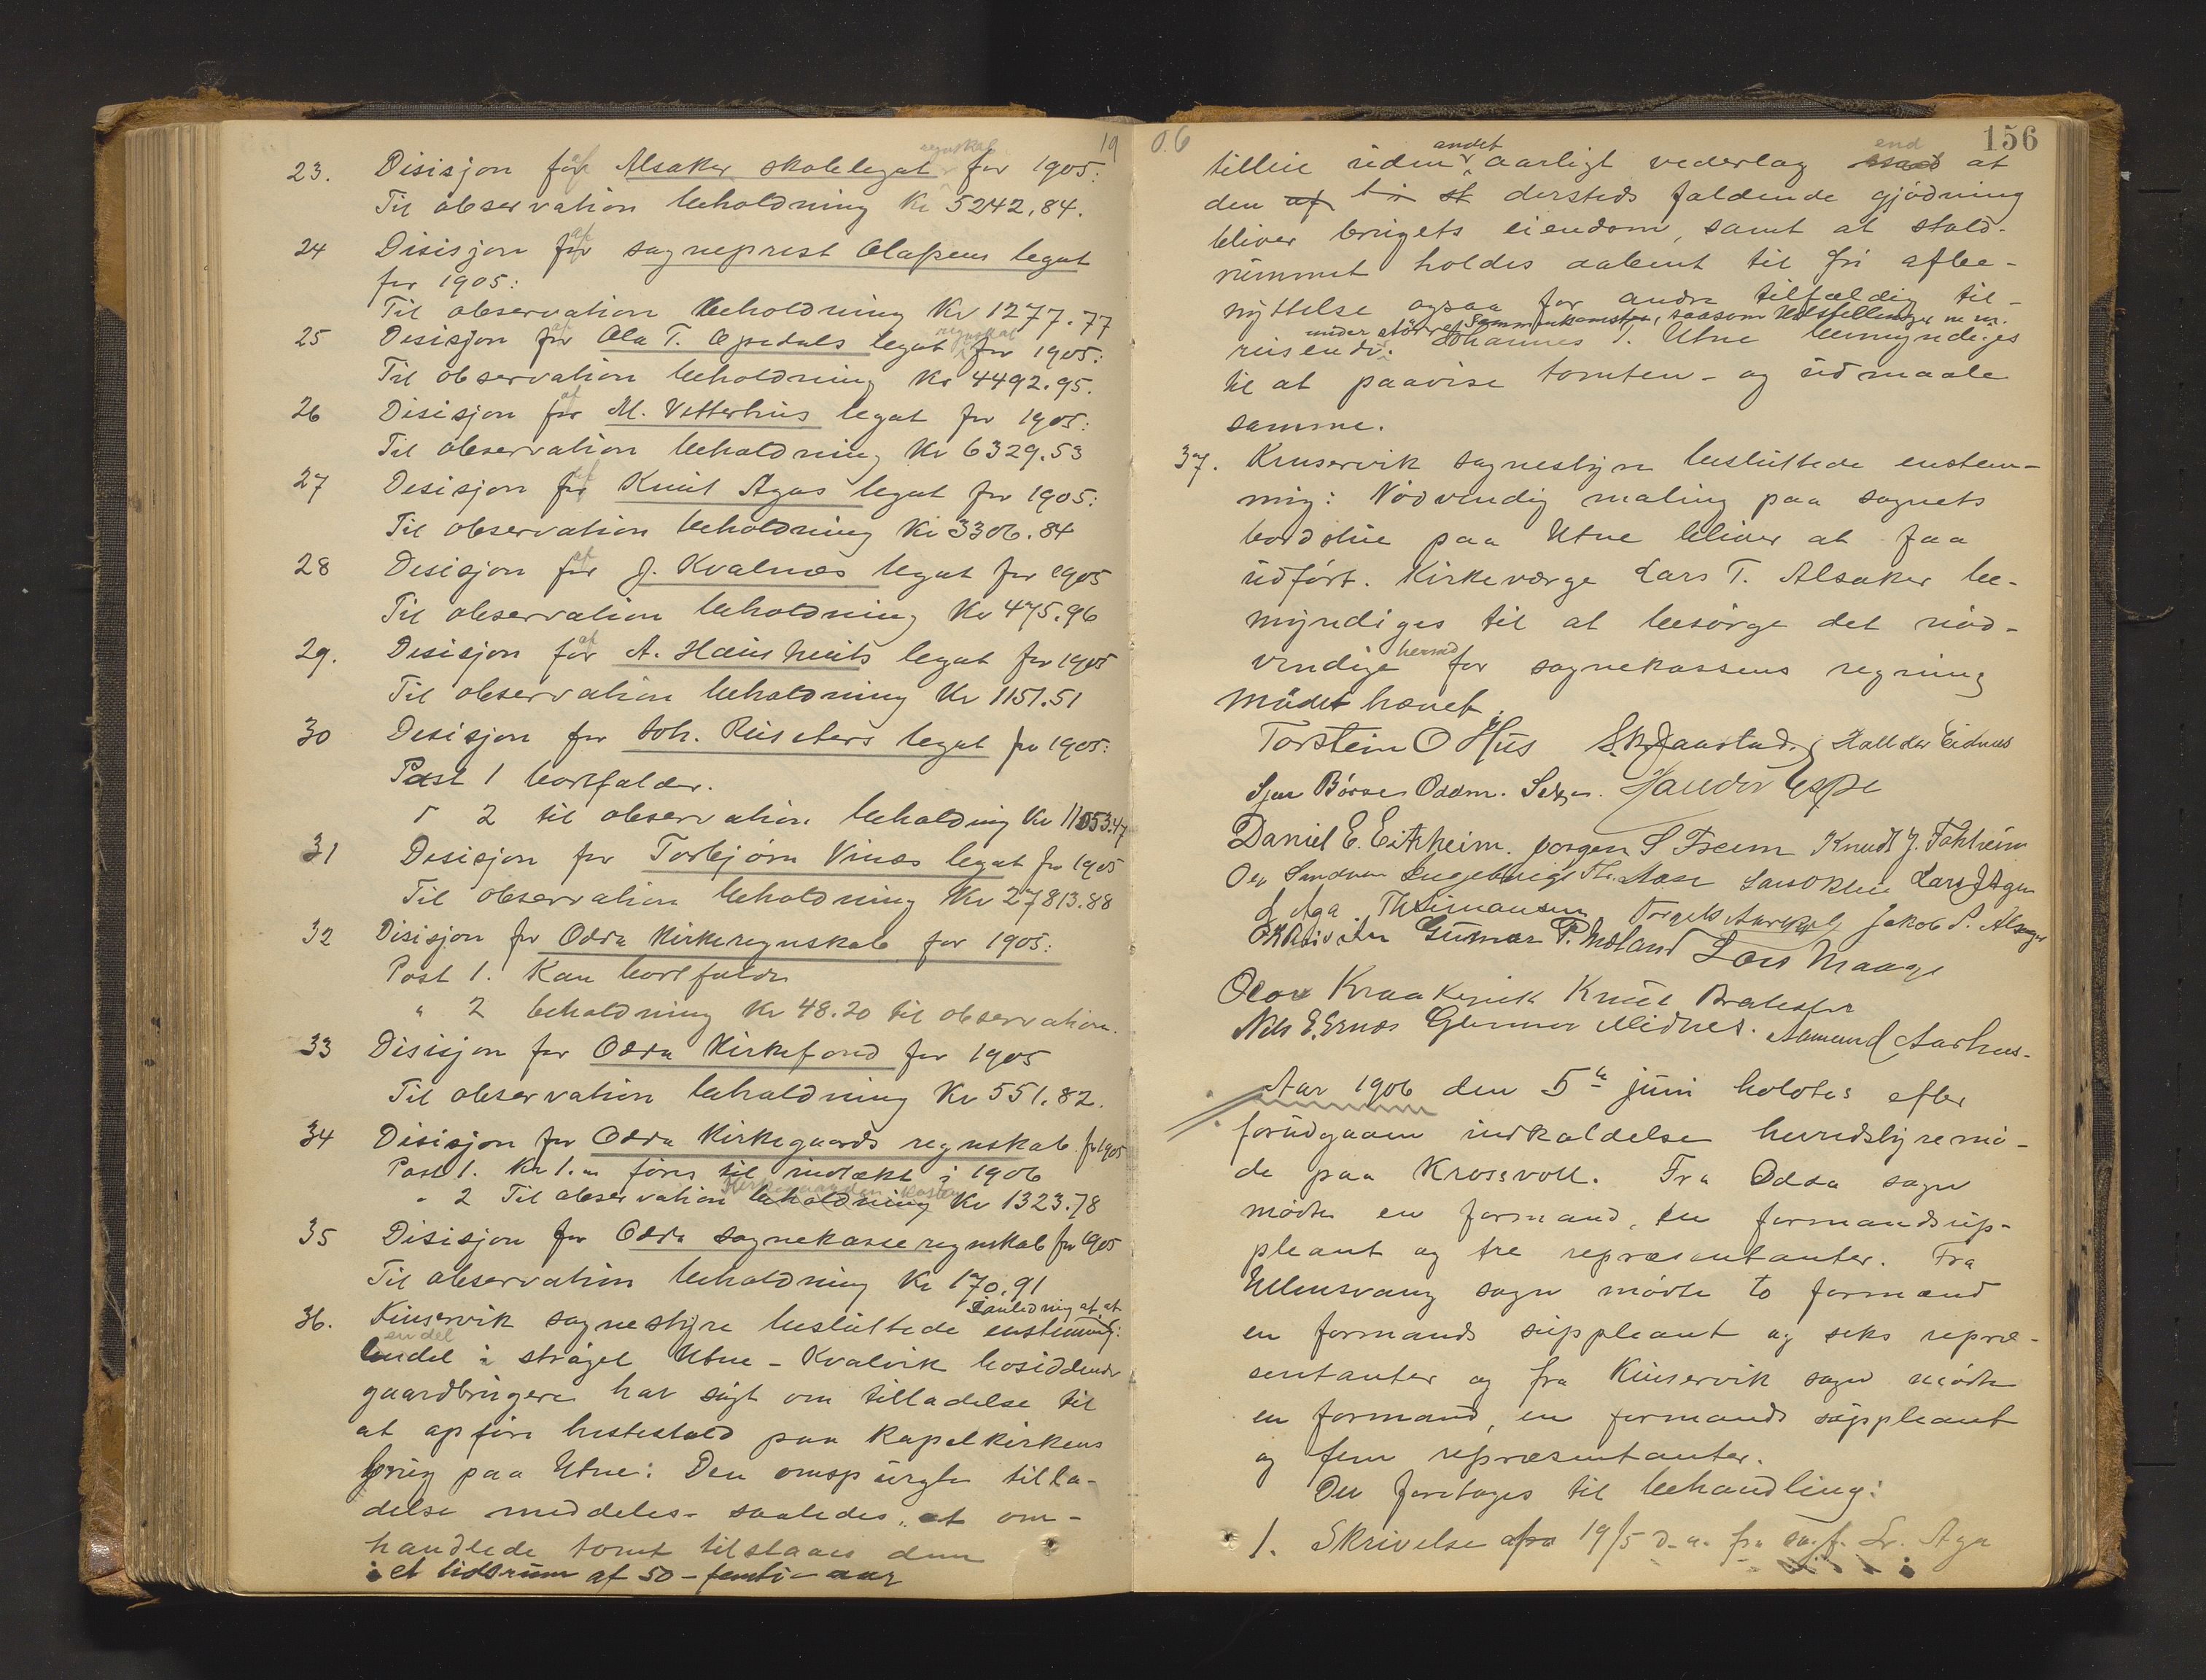 19
23. Disisjon for af Alsaker skolelegat regnskab for 1905:
Til observation beholdning Kr 5242,84.
24 Disisjon for af sogneprest Olafsens legat
for 1905:
Til observation beholdning Kr 1277.77
25 Desisjon for af Ola T. Opedals legat regnskab for 1905:
Til observation beholdning Kr 4492.95.
26 Disisjon for af M. Vetterhus legat for 1905:
Til observation beholdning Kr 6329.53
27 Desisjon for af Knut Agas legat for 1905:
Til observation beholdning Kr 3306.84
28 Desisjon for af J. Kvalnes legat for 1905
Til observation beholdning Kr 475.96
29. Desisjon for af A. legat for 1905
Til observation beholdning Kr 1151.51
30 Desisjon for Joh. legat for 1905:
Post 1 bortfalder.
" 2 til observation beholdning Kr 11553.47
31 Desisjon for Torbjørn Vines legat for 1905
Til observation beholdning Kr 27813.88
32 Disisjon for Odda Kirkeregnskab for 1905:
Post 1. Kan bortfalde
" 2 beholdning Kr 48.20 til observation.
33 Disisjon for Odda Kirkefond for 1905
Til observation beholdning Kr 551.82.
34 Disisjon for Odda Kirkegaards regnskab for 1905
Post 1. Kr 1. føres til indtækt i 1906
" 2 Til observation beholdning Kirkegaarden koster Kr 1323.78
35 Disisjon for Odda sognekasse regnskab for 1905
Til observation beholdning Kr 170.91
i anledning af at
36. Kinservik sognestyre besluttede enstemmig:
en del
Endel i strøget Utne - Kvalvik bosiddende
gaardbrugere har søgt om tilladelse til
at opføre hestestald paa Kapelkirkens
brug paa Utne: Den omspurgte tilla-
delse meddeles - saaledes, at om-
handlede tomt tilstaaes dem
i et tidsrum af 50 - femti - aar
06
156
andet end
tilleie uden aarligt vederlag at
den af st dersteds faldende gjødning
bliver brugets eiendom, samt at stald-
rummet holdes aabent til fri afbe-
nyttelse ogsaa for andre tilfældig til-
under større Sammenkomster, saasom Udstellinger m. m.
reisende. Johannes T. Utne bemyndiges
til at paavise tomten - og udmaale
samme.
37. Kinservik sognestyre besluttede enstem-
mig: Nødvendig maling paa sognets
bordstue paa Utne bliver at faa
udført. Kirkeværge Lars T. Alsaker be-
myndiges til at besørge det nød-
vendige hermed for sognekassens regning
Mødet hævet.
Torstein O Hus S. K. Jaastad. Halldor Eidnes
Sjur Børse Oddm. Selj. Halldor Espe
Daniel E. Eitrheim. Jørgen S Freim Knudt J. Tokheim
Ingebrigt Th. Aase Lars J Aga
Aga. Th Simonsen Torgils Jakob S. Alsager
Gunnar P. Moland Lars Maage
Olav Kraakevik Knut Bratestø
Nils E. Ernes Gunnar Midnes. Aamund Aarhus.
Aar 1906 den 5te juni holdtes efter
forudgaaen indkaldelse herredsstyremø-
de paa Krossvoll. Fra Odda sogn
mødte en formand, en formandsup-
pleant og tre repræsentanter. Fra
Ullensvang sogn mødte to formænd
en formands suppleant og seks repræ-
sentanter og fra Kinservik sogn mødte
en formand, en formands suppleant
og fem repræsentanter.
Der foretoges til behandling:
1. Skrivelse afra 19/5 d. a. fra sa.f. L. Aga